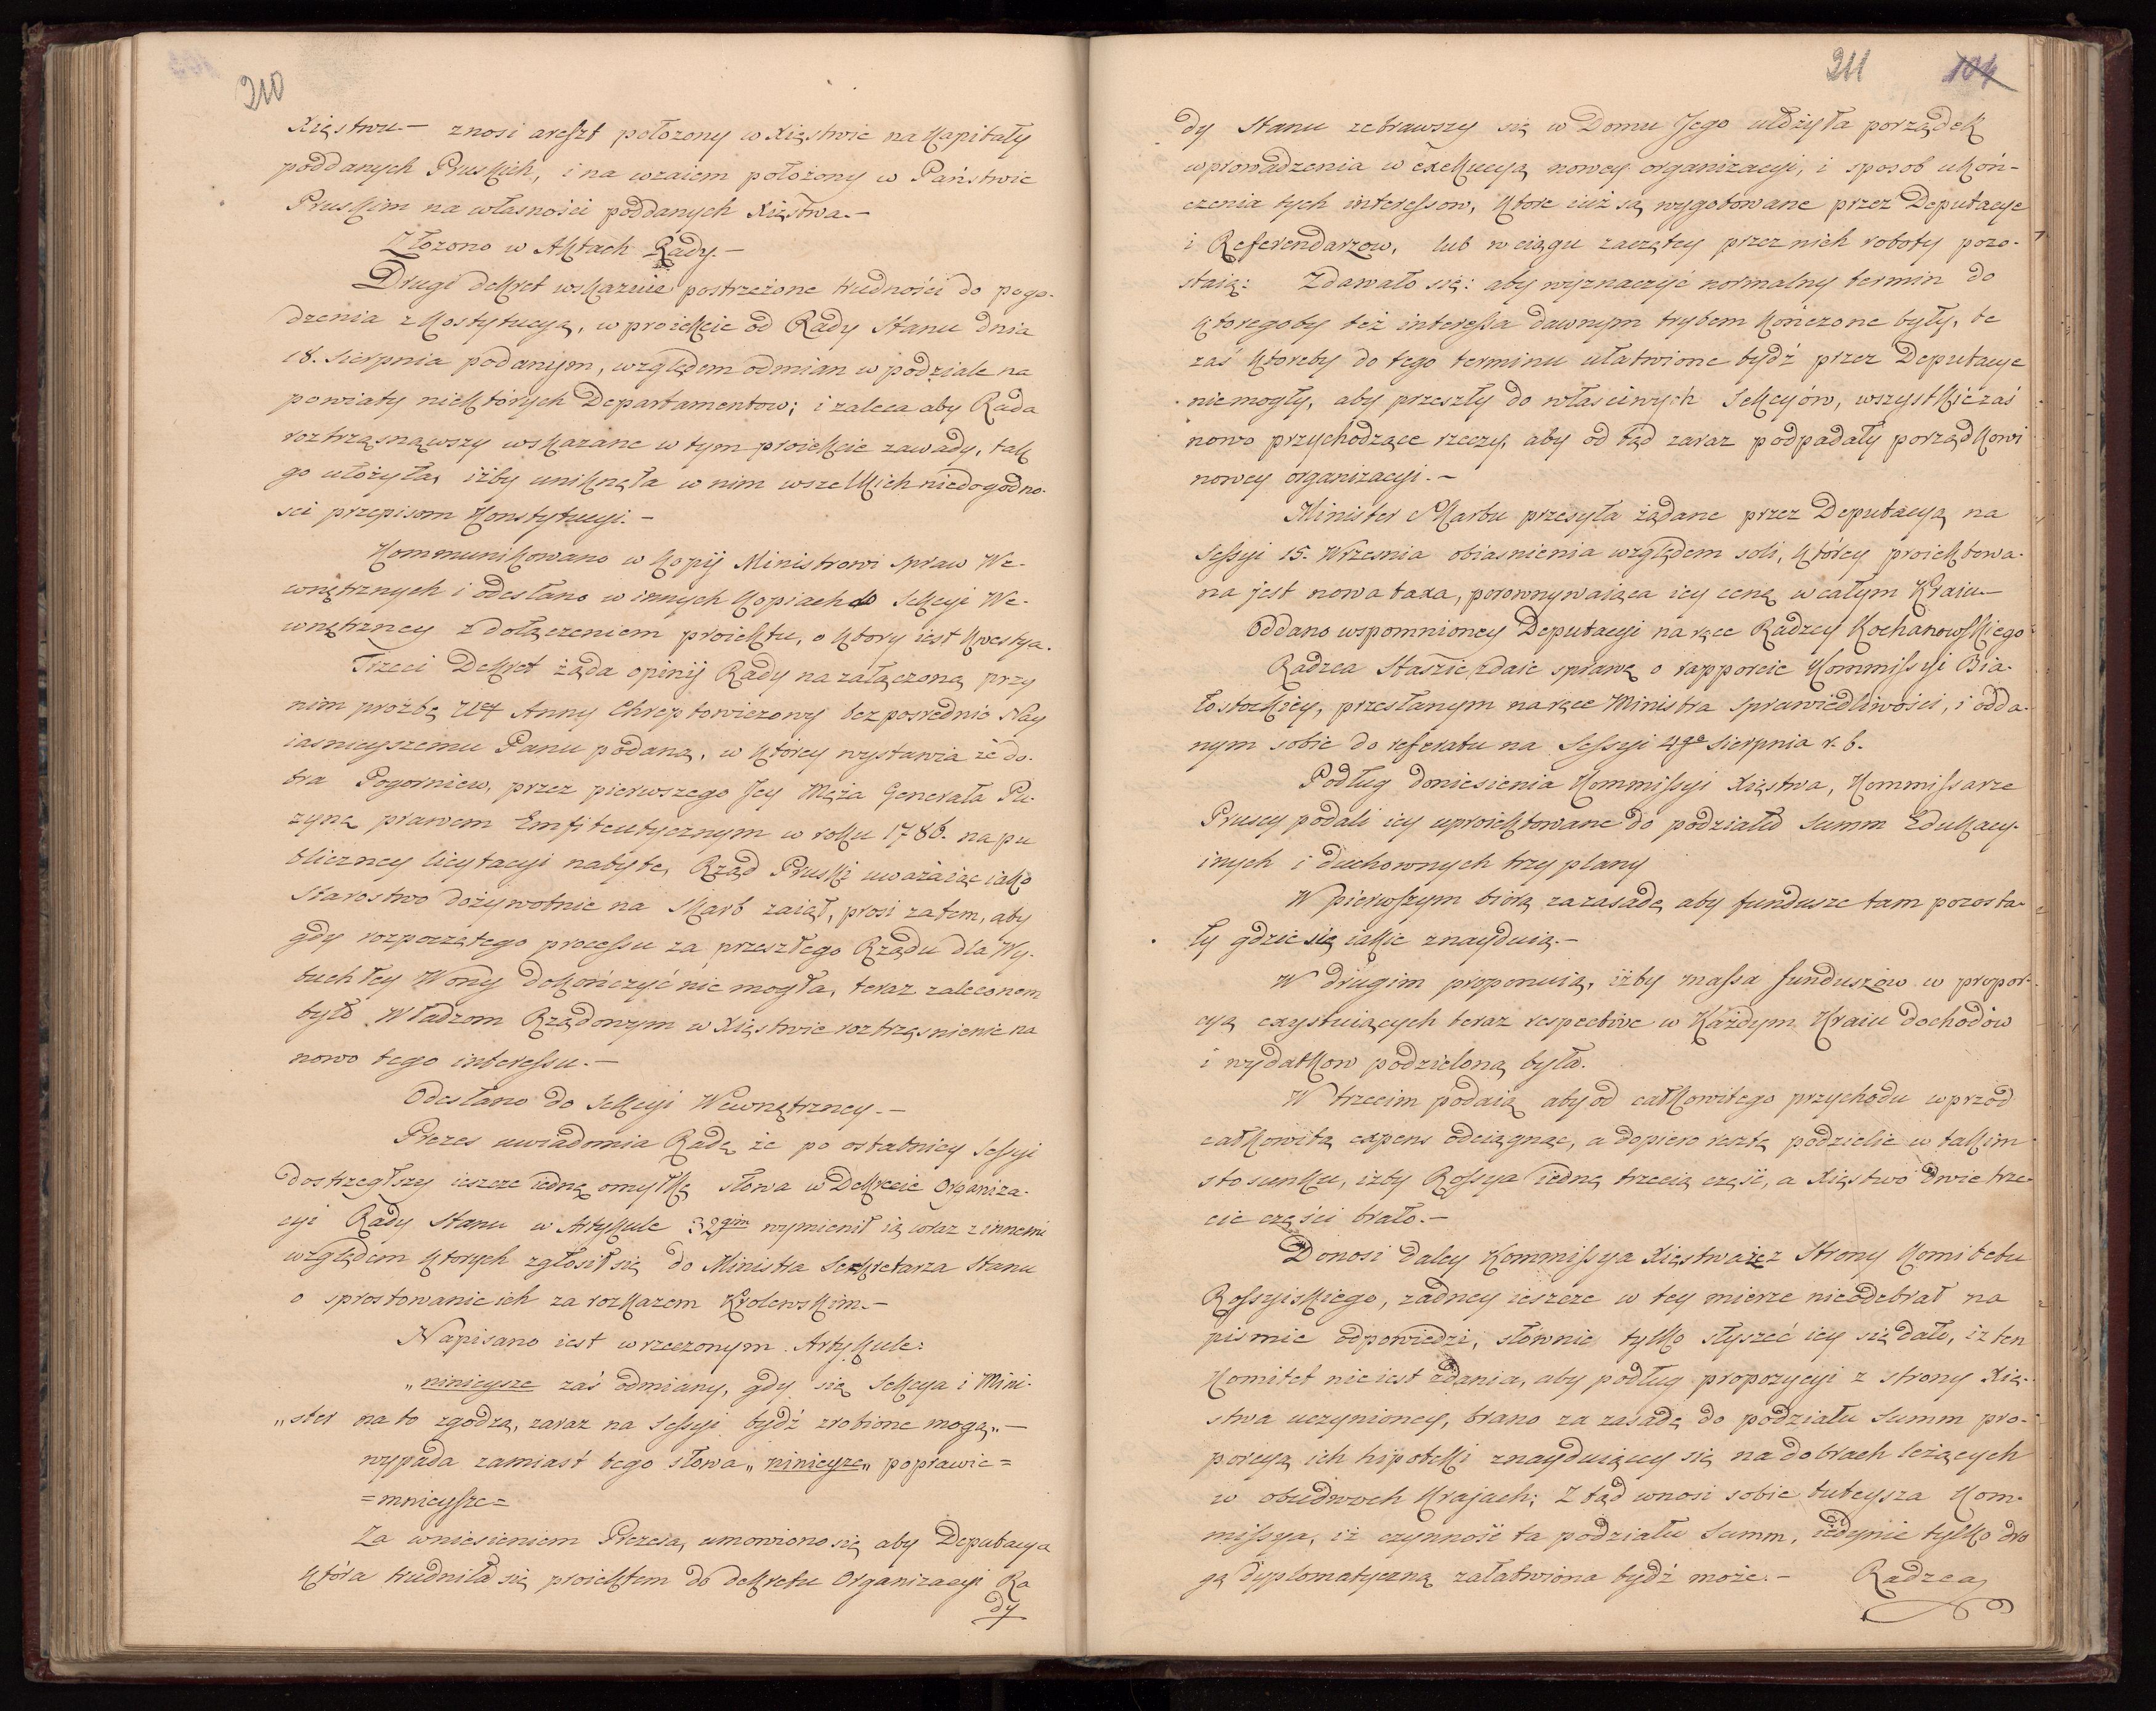 210
Xięstwu.— znosi areszt położony w Xięstwie na Kapitały
poddanych Pruskich, i na wzaiem położony w Państwie
Pruskim na własności poddanych Xięstwa.—
Złożono w Aktach Rady.—
Drugi dekret wskazuie postrzeżone trudności do pogo-
dzenia z Kostytucyą, w proiekcie od Rady Stanu dnia
18. Sierpnia podanym, względem odmian w podziale na
powiaty niektórych Departamentow; i zaleca aby Rada
roztrząsnąwszy wskazane w tym proiekcie zawady, tak
go ułożyła, iżby uniknęła w nim wszelkich niedogodno-
sci przepisom Konstytucyi.—
Kommunikowano w kopij Ministrowi spraw We-
wnętrznych i odesłano w innych Kopiach do Sekcyi We-
wnętrzney z dołączeniem proiektu, o ktory iest kwestya.
Trzeci Dekret żąda opinij Rady na załączoną przy
nim proźbę Anny Chreptowiczowy bezposrednio Nay
iasnieyszemu Panu podaną, w którey wystawia że do-
bra Pogorniew, przez pierwszego Jey Męża Generała Pu-
zynę prawem Emfiteutycznym w roku 1786. na pu
bliczney licytacyi nabyte, Rząd Pruski uważaiąc iako
Starostwo dożywotnie na Skarb zaiął, prosi zatem, aby
gdy rozpoczątego processu za przeszłego Rządu dla Wy-
buchłey Wony dokończyć nie mogła, teraz zaleconem
było Władzom Rządowym w Xięstwie roztrząsnienie na
nowo tego interessu.—
Odesłano do Sekcyi Wewnętrzney.—
Prezes uwiadomia Radę że po ostatniey Sessyi
dostrzegłszy ieszcze iednę omyłkę słowa w Dekrecie Organiza-
cyi Rady Stanu w Artykule 32gim wymienił ią wraz z innemi
względem ktorych zgłosił się do Ministra Sekretarza Stanu
o sprostowanie ich za rozkazem Krolewskim.—
Napisano iest w rzeczonym Artykule:
„ninieysze zaś odmiany, gdy się Sekcya i Mini-
„ster na to zgodzą, zaraz na Sessyi bydź zrobione mogą„—
wypada zamiast tego słowa „ninieysze„ poprawic=
=mnieysze=
Za wniesieniem Prezesa, umowiono się aby Deputacya
która trudniła się proiektem do dekretu Organizacyi Ra
dy
211 104
dy Stanu zebrawszy się w Domu Jego ułożyła porządek
wprowadzenia w exekucyą nowey organizacyi, i sposob ukoń-
czenia tych interessow, ktore iuż są wygotowane przez Deputacye
i Referendarzow, lub w ciągu zaczętey przez nich roboty pozo-
staią: Zdawało się: aby wyznaczyć normalny termin do
ktoregoby też interessa dawnym trybem kończone były, te
zaś ktoreby do tego terminu ułatwione bydź przez Deputacye
niemogły, aby przeszły do właściwych Sekcyów, wszystkie zaś
nowo przychodzące rzeczy, aby od tąd zaraz podpadały porządkowi
nowey organizacyi.—
Minister Skarbu przesyła żądane przez Deputacyą na
Sessyi 15. Wrzesnia obiasnienia względem soli, którey proiektowa-
na jest nowa taxa, porownywaiąca iey cenę w całym Kraiu.—
Oddano wspomnioney Deputacyi na ręce Radzcy Kochanowskiego
Radzca Staszic zdaie sprawę o rapporcie Kommissyi Bia-
łostockiey, przesłanym na ręce Ministra Sprawiedliwości, i odda-
nym sobie do referatu na Sessyi 4go Sierpnia r. b.
Podług doniesienia Kommissyi Xięstwa, Kommissarze
Pruscy podali iey uproiektowane do podziału Summ Edukacy-
inych i duchownych trzy plany
W pierwszym biorą za zasadę aby fundusze tam pozosta-
ły gdzie się iakie znayduią.—
W drugim proponuią, iżby massa funduszów w propor-
cyą exystuiących teraz respective w Każdym Kraiu dochodów
i wydatkow podzieloną była.
W trzecim podaią aby od całkowitego przychodu wprzód
całkowitą expens odciągnąc, a dopiero resztę podzielic w takim
stosunku, iżby Rossya iedną trzecią część, a Xięstwo dwie trze-
cie części brało.—
Donosi daley Kommissya Xięstwa że z Strony Komitetu
Rossyiskiego, żadney ieszcze w tey mierze nieodebrał na
pismie odpowiedzi, słownie tylko słyszeć iey się dało, iż ten
Komitet nie iest zdania, aby podług propozycyi z strony Xię-
stwa uczynioney, brano za zasadę do podziału Summ pro-
porcyą ich hipoteki znayduiący się na dobrach leżących
w obudwoch krajach; Z tąd wnosi sobie tuteysza Kom-
missya, iż czynność ta podziału Summ, iedynie tylko dro
gą dyplomatyczną załatwiona bydź może.— Radzca